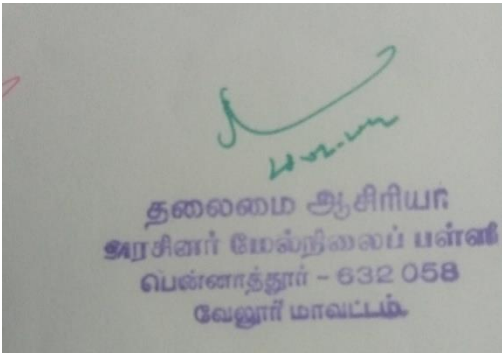 தலைமை ஆசிரியர்
அரசினர் மேல்நிலைப் பள்ளி
பென்னாத்தூர் - 632 058
வேலூர் மாவட்டம்.